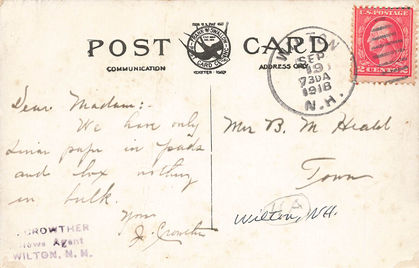 POST CARD
COMMUNICATION
ADDRESS ONLY
WILTON
SEP
19
730A
1918
N.H.
U.S. POSTAGE
2 CENTS 2
Dear Madam:-
We have only
Linen paper in pads
and box nothing
in bulk.
Yours
J. Crowther
CROWTHER
News Agent
WILTON, N. H.
Mrs B. M. Heald
Town
Wilton, NH.